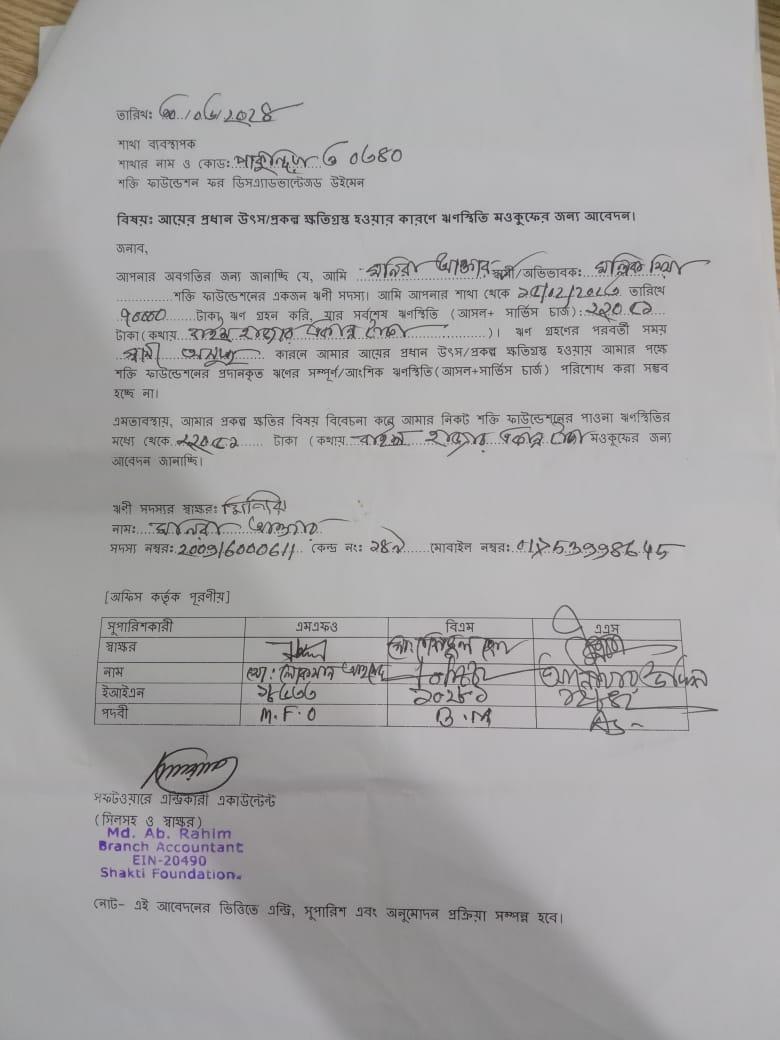 তারিখ: /০৬/২০২৪
শাখা ব্যবস্থাপক
শাখার নাম ও কোড: পাকুন্দিয়া ০৬৪০
শক্তি ফাউন্ডেশন ফর ডিসএ্যাডভান্টেজড উইমেন
বিষয়: আয়ের প্রধান উৎস/প্রকল্প ক্ষতিগ্রস্থ হওয়ার কারণে ঋণস্থিতি মওকুফের জন্য আবেদন।
জনাব,
আপনার অবগতির জন্য জানাচ্ছি যে, আমি মনিরা আক্তার স্বামী/অভিভাবক: মল্লিক মিয়া
শক্তি ফাউন্ডেশনের একজন ঋণী সদস্য। আমি আপনার শাখা থেকে তারিখে
৭০০০০ টাকা ঋণ গ্রহন করি, যার সর্বশেষ ঋণস্থিতি (আসল+ সার্ভিস চার্জ): ২২০৫১
টাকা (কথায় বাইশ হাজার একান্ন টাকা )। ঋণ গ্রহণের পরবর্তী সময়
স্বামী অসুস্থ কারনে আমার আয়ের প্রধান উৎস/প্রকল্প ক্ষতিগ্রস্থ হওয়ায় আমার পক্ষে
শক্তি ফাউন্ডেশনের প্রদানকৃত ঋণের সম্পূর্ণ/আংশিক ঋণস্থিতি (আসল+সার্ভিস চার্জ) পরিশোধ করা সম্ভব
হচ্ছে না।
এমতাবস্থায়, আমার প্রকল্প ক্ষতির বিষয় বিবেচনা করে আমার নিকট শক্তি ফাউন্ডেশনের পাওনা ঋণস্থিতির
মধ্যে থেকে ২২০৫১ টাকা (কথায় বাইশ হাজার একান্ন টাকা মওকুফের জন্য
আবেদন জানাচ্ছি।
ঋণী সদস্যর স্বাক্ষর: মনিরা
নাম: মনিরা আক্তার
সদস্য নম্বর: 200916000611 কেন্দ্র নং: মোবাইল নম্বর: 01753998645
[অফিস কর্তৃক পূরণীয়]
সুপারিশকারী এমএফও বিএম এএস
স্বাক্ষর
নাম মো: লোকমান আহমেদ
ইআইএন
পদবী M.F.O B.M AS
সফটওয়ারে এন্ট্রিকারী একাউন্টেন্ট
(সিলসহ ও স্বাক্ষর)
Md. Ab. Rahim
Branch Accountant
EIN-20490
Shakti Foundation.
নোট- এই আবেদনের ভিত্তিতে এন্ট্রি, সুপারিশ এবং অনুমোদন প্রক্রিয়া সম্পন্ন হবে।